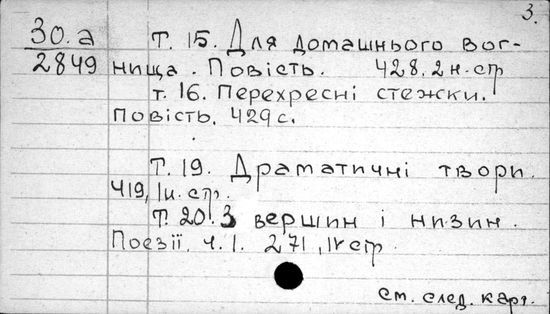 3.
30.а
2849
Т. 15. Для домашнього вог-
нища. Повість. 428, 2 н. стр
т. 16. Перехресні стежки.
Повість. 429 с.
Т. 19. Драматичні твори.
419, 1 н. стр.
Т. 20. З вершин і низин.
Поезії. ч. I. 271, IV стр.
См. след. карт.